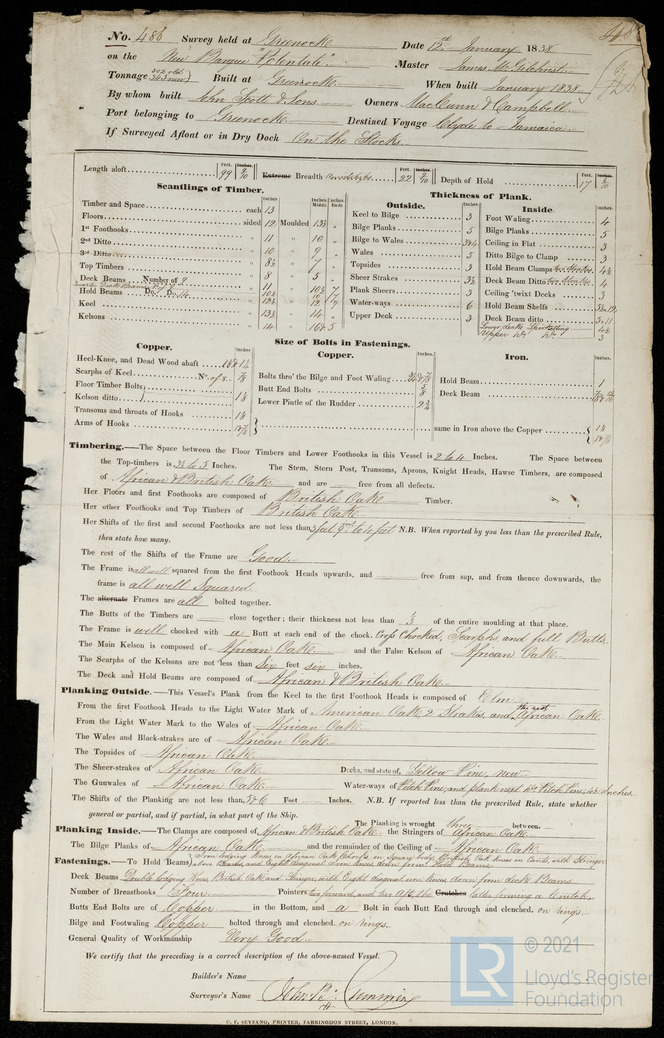 No. 488 Survey held at Greenock Date 12th January 1838
on the New Barque "Potentate" Master James McGilchrist
Tonnage 302 old 343 new Built at Greenock When built January 1838
By whom built John Scott & Sons Owners MacCunn & Campbell
Port belonging to Greenock Destined Voyage Clyde to Jamaica
If Surveyed Afloat or in Dry Dock On the Stocks
Length aloft Feet. 99 Extreme Breadth Feet. 22 Depth of Hold Feet. 17
Scantlings of Timber.
Inches Inches. Middle Inches Ends
Timber and Space each 13
Floors sided 12 Moulded 13½
1st Foothooks 11 " 10
2nd Ditto 10 " 9
3rd Ditto 8½ " 7
Top Timbers 8 " 5
Deck Beams Number of 9
Hold Beams
Keel 13½ " 14
Kelsons 14 " 16½
Thickness of Plank.
Outside.
Inches
Keel to Bilge 3
Bilge Planks 5
Bilge to Wales 3&4
Wales 5
Topsides 3
Sheer Strakes 3½
Plank Sheers 3
Water-ways 6
Upper Deck 3
Inside.
Inches
Foot Waling 4
Bilge Planks 5
Ceiling in Flat 3
Ditto Bilge to Clamp 3
Hold Beam Clamps two strakes 4½
Deck Beam Ditto two strakes 4
Ceiling 'twixt Decks 3
Hold Beam Shelfs
Deck Beam ditto
Lower deck Spirketting 4½
Upper Do Do 3
Size of Bolts in Fastenings.
Copper.
Heel-Knee, and Dead Wood abaft
Scarphs of Keel No. of 8 7/8
Floor Timber Bolts
Kelson ditto 1 1/8
Transoms and throats of Hooks 1 1/8
Arms of Hooks
Copper.
Bolts thro' the Bilge and Foot Waling
Butt End Bolts
Lower Pintle of the Rudder
Iron.
Hold Beam 1
Deck Beam
same in Iron above the Copper
Timbering.—The Space between the Floor Timbers and Lower Foothooks in this Vessel is 2 to 4 Inches. The Space between
the Top-timbers is 3½ to 5 Inches. The Stem, Stern Post, Transoms, Aprons, Knight Heads, Hawse Timbers, are composed
of African & British Oak and are free from all defects.
Her Floors and first Foothooks are composed of British Oak Timber.
Her other Foothooks and Top Timbers of British Oak
Her Shifts of the first and second Foothooks are not less than N.B. When reported by you less than the prescribed Rule,
then state how many.
The rest of the Shifts of the Frame are Good
The Frame is all well squared from the first Foothook Heads upwards, and free from sap, and from thence downwards, the
frame is all well Squared
The alternate Frames are all bolted together.
The Butts of the Timbers are close together; their thickness not less than 1/3 of the entire moulding at that place.
The Frame is well chocked with a Butt at each end of the chock. Crop Chocked, Scarphs and full Butts
The Main Kelson is composed of African Oak and the False Kelson of African Oak
The Scarphs of the Kelsons are not less than Six feet six inches.
The Deck and Hold Beams are composed of African & British Oak
Planking Outside.—This Vessel's Plank from the Keel to the first Foothook Heads is composed of Elm
From the first Foothook Heads to the Light Water Mark of American Oak 2 Strakes, and the rest African Oak
From the Light Water Mark to the Wales of African Oak
The Wales and Black-strakes are of African Oak
The Topsides of African Oak
The Sheer-strakes of African Oak Decks, and state of, Yellow Pine, new
The Gunwales of African Oak Water-ways of Pitch Pine, and plank next Do Pitch Pine, 4½ Inches
The Shifts of the Planking are not less than 5 & 6 Feet Inches. N.B. If reported less than the prescribed Rule, state whether
general or partial, and if partial, in what part of the Ship. The Planking is wrought three between.
Planking Inside.—The Clamps are composed of African & British Oak the Stringers of African Oak
The Bilge Planks of African Oak and the remainder of the Ceiling of African Oak
Fastenings.—To Hold Beams Iron lodging knees on African Oak Chocks in Square body, British Oak knees on Cants, with Stringer
above Beams, and Eight diagonal Iron
Deck Beams Double lodging Knees British Oak and Stringer, with Eight diagonal iron knees down from deck Beams
Number of Breasthooks Four Pointers two forward, and two aft, the Crutches latter forming a Crutch
Butts End Bolts are of Copper in the Bottom, and a Bolt in each Butt End through and clenched. on rings.
Bilge and Footwaling Copper bolted through and clenched. on rings.
General Quality of Workmanship Very Good
We certify that the preceding is a correct description of the above-named Vessel.
Builder's Name
Surveyor's Name John B. Cumming
C. F. SEYFANG, PRINTER, FARRINGDON STREET, LONDON.
LR © 2021
Lloyd's Register
Foundation